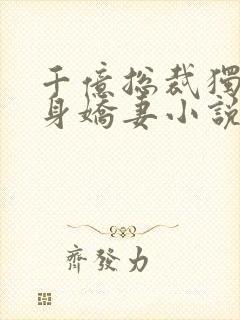 千億總裁獨
身嬌妻小說
齊發力